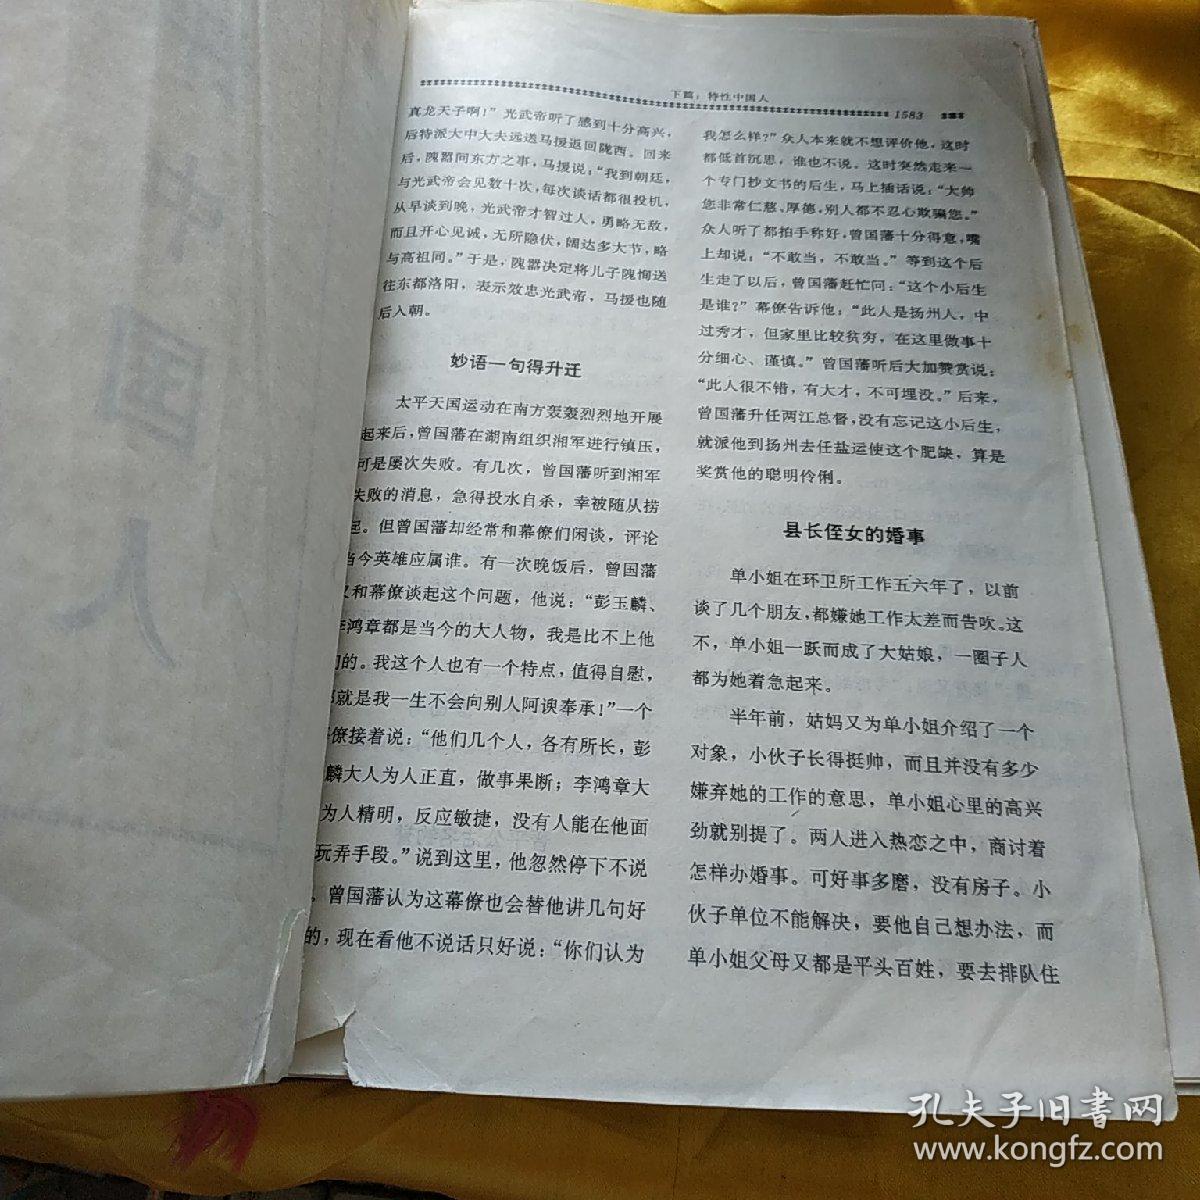 下篇：特性中国人
1583
真龙天子啊！”光武帝听了感到十分高兴，
后特派大中大夫远送马援返回陇西。回来
后，隗嚣问东方之事，马援说：“我到朝廷，
与光武帝会见数十次，每次谈话都很投机，
从早谈到晚，光武帝才智过人，勇略无敌，
而且开心见诚，无所隐伏，阔达多大节，略
与高祖同。”于是，隗嚣决定将儿子隗恂送
往东都洛阳，表示效忠光武帝，马援也随
后入朝。
妙语一句得升迁
太平天国运动在南方轰轰烈烈地开展
起来后，曾国藩在湖南组织湘军进行镇压，
可是屡次失败。有几次，曾国藩听到湘军
失败的消息，急得投水自杀，幸被随从捞
起。但曾国藩却经常和幕僚们闲谈，评论
当今英雄应属谁。有一次晚饭后，曾国藩
又和幕僚谈起这个问题，他说：“彭玉麟、
李鸿章都是当今的大人物，我是比不上他
们的。我这个人也有一个特点，值得自慰，
那就是我一生不会向别人阿谀奉承！”一个
僚接着说：“他们几个人，各有所长，彭
麟大人为人正直，做事果断；李鸿章大
为人精明，反应敏捷，没有人能在他面
玩弄手段。”说到这里，他忽然停下不说
。曾国藩认为这幕僚也会替他讲几句好
的，现在看他不说话只好说：“你们认为
我怎么样？”众人本来就不想评价他，这时
都低首沉思，谁也不说。这时突然走来一
个专门抄文书的后生，马上插话说：“大帅
您非常仁慈、厚德，别人都不忍心欺骗您。”
众人听了都拍手称好，曾国藩十分得意，嘴
上却说：“不敢当，不敢当。”等到这个后
生走了以后，曾国藩赶忙问：“这个小后生
是谁？”幕僚告诉他：“此人是扬州人，中
过秀才，但家里比较贫穷，在这里做事十
分细心、谨慎。”曾国藩听后大加赞赏说：
“此人很不错，有大才，不可埋没。”后来，
曾国藩升任两江总督，没有忘记这小后生，
就派他到扬州去任盐运使这个肥缺，算是
奖赏他的聪明伶俐。
县长侄女的婚事
单小姐在环卫所工作五六年了，以前
谈了几个朋友，都嫌她工作太差而告吹。这
不，单小姐一跃而成了大姑娘，一圈子人
都为她着急起来。
半年前，姑妈又为单小姐介绍了一个
对象，小伙子长得挺帅，而且并没有多少
嫌弃她的工作的意思，单小姐心里的高兴
劲就别提了。两人进入热恋之中，商讨着
怎样办婚事。可好事多磨，没有房子。小
伙子单位不能解决，要他自己想办法，而
单小姐父母又都是平头百姓，要去排队住
孔夫子旧书网
www.kongfz.com